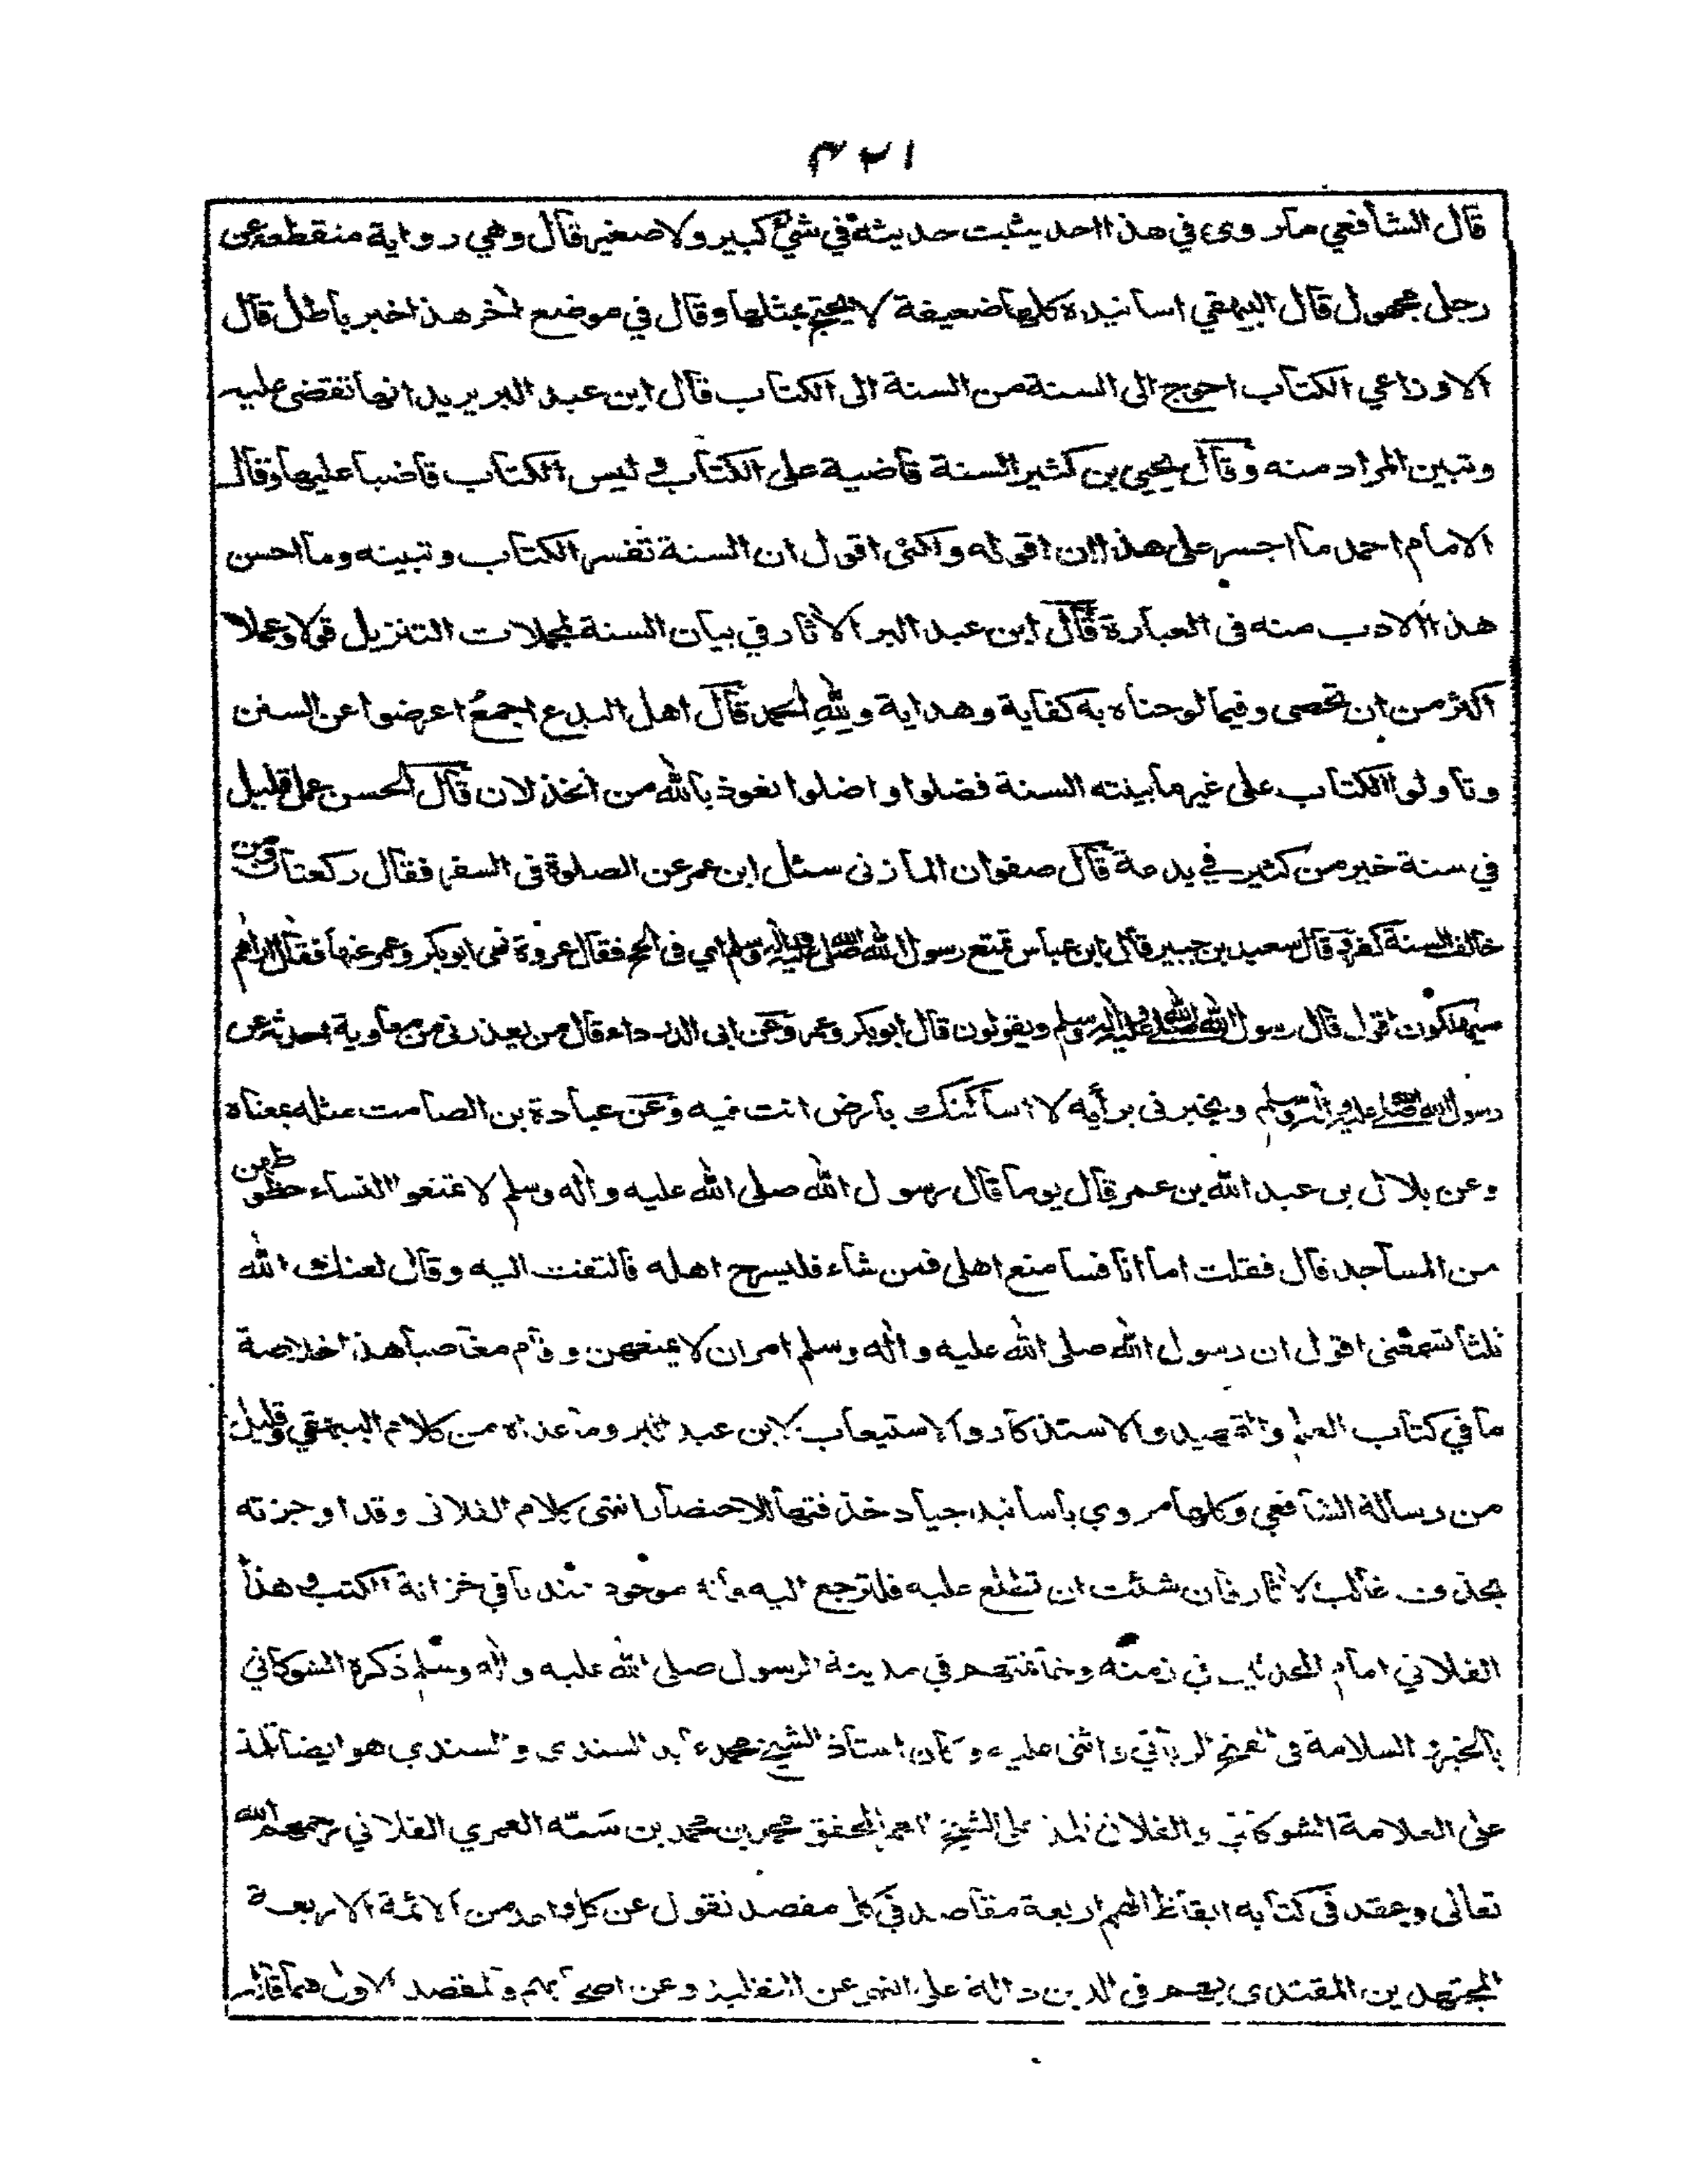 ٣٢١
قال الشافعي ما روى في هذا احد يثبت حديثه في شئ كبير ولا صغير قال وهي رواية منقطعة عن
رجل مجهول قال البيهقي اسانيده كلها ضعيفة لا يحتج بمثلها وقال في موضع اٰخر هذا خبر باطل قال
الاوزاعي الكتاب احوج الى السنة من السنة الى الكتاب قال ابن عبد البر يريد انها تقضى عليه
وتبين المراد منه وقال يحيى بن كثير السنة قاضية على الكتاب و ليس الكتاب قاضيا عليها وقال
الامام احمد ما اجسر على هذا ان اقوله ولكنى اقول ان السنة تفسر الكتاب وتبينه وما احسن
هذا الادب منه فى العبارة قال ابن عبد البر الاٰثار في بيان السنة لمجملات التنزيل قولا وعملا
اكثر من ان تحصى وفيما لوحناه به كفاية وهداية ولله الحمد قال اهل البدع اجمع اعرضوا عن السنن
وتأولوا الكتاب على غير ما بينته السنة فضلوا واضلوا نعوذ بالله من الخذلان قال الحسن عمل قليل
في سنة خير من كثير في بدعة قال صفوان المازنى سئل ابن عمر عن الصلوة فى السفر فقال ركعتان ومن
خالف السنة كفر وقال سعيد بن جبير قال ابن عباس تمتع رسول الله صلى الله عليه واله وسلم اي فى الحج فقال عروة نهى ابوبكر وعمر عنها فقال اراهم
سيهلكون اقول قال رسول الله صلى الله عليه واله وسلم ويقولون قال ابوبكر وعمر وعن ابى الدرداء قال من يعذرنى من معاوية احدثه عن
رسول الله صلى الله عليه واله وسلم ويخبرنى برأيه لا اساكنك بارض انت فيه وعن عبادة بن الصامت مثله بمعناه
وعن بلال بن عبد الله بن عمر قال يوما قال رسول الله صلى الله عليه واٰله وسلم لا تمنعوا النساء حظوظهن
من المساجد قال فقلت اما انا فسامنع اهلى فمن شاء فليسرح اهله فالتفت اليه وقال لعنك الله
ثلثا تسمعنى اقول ان رسول الله صلى الله عليه واٰله وسلم امر ان لا يمنعهن وقام مغاضبا هذا خلاصة
ما في كتاب العلم والتمهيد والاستذكار والاستيعاب لابن عبد البر وما عداه من كلام البيهقي وقليل
من رسالة الشافعي وكلها مروي باسانيد جياد حذفتها للاختصار انتهى كلام الفلانى وقد اوجزته
بحذف غالب الاٰثار فان شئت ان تطلع عليه فلترجع اليه فانه موجود عندنا في خزانة الكتب و هذا
الفلاني امام المحدثين في زمنه وخاتمتهم في مدينة الرسول صلى الله عليه واٰله وسلم ذكره الشوكاني
بالخير و السلامة فى الفتح الربانى واثنى عليه وكان استاذ الشيخ محمد عابد السندى والسندي هو ايضا تلمذ
على العلامة الشوكاني والفلانى تلمذ على الشيخ المعمر المحقق محمد بن محمد بن سنه العمري الفلاني رحمهم الله
تعالى وعقد فى كتابه ايقاظ الهمم اربعة مقاصد في كل مقصد نقول عن كل واحد من الائمة الاربعة
المجتهدين المقتدى بهم فى الدين دالة على النهى عن التقليد وعن اصحابهم والمقصد الاول فيما قاله